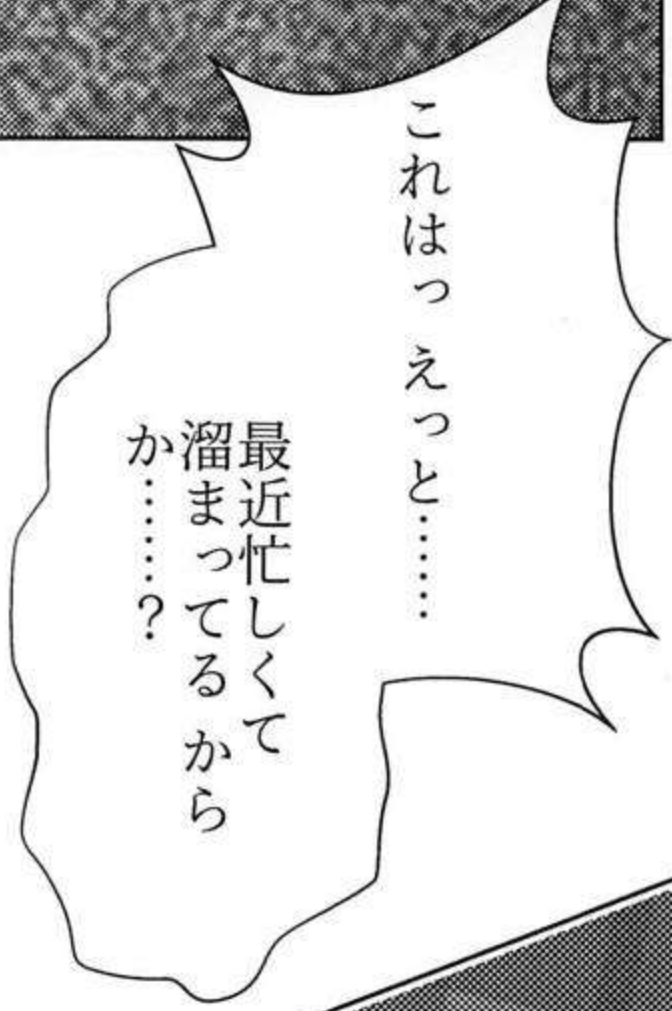 これはっ えっと……
最近忙しくて
溜まってる から
か……？